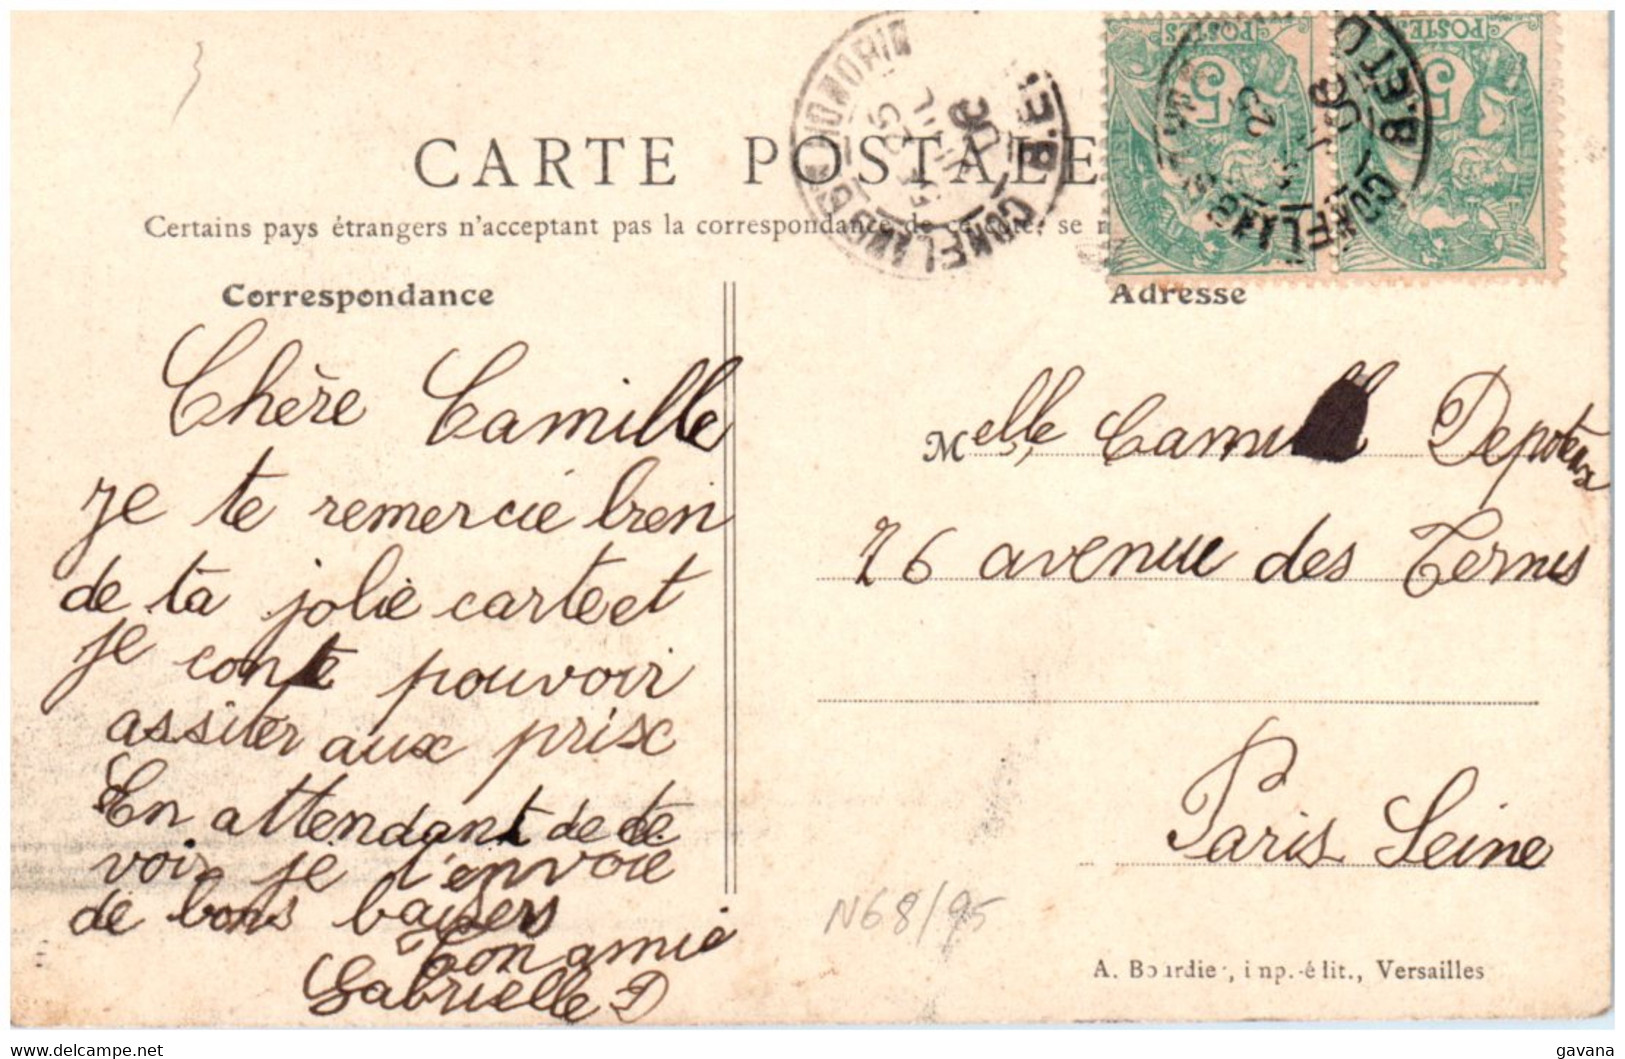 CARTE POSTALE
Certains pays étrangers n'acceptant pas la correspondance de ce côté, se
Correspondance
Adresse
Chère Camille
je te remercie bien
de ta jolie carte et
je conte pouvoir
assiter aux prix
En attendant de te
voir je t'envoie
de bons baisers
Ton amie
Gabrielle D
Melle Camille Depoteux
76 avenue des Ternes
Paris Seine
N68/95
A. Bourdier, imp.-édit., Versailles
POSTES
5
POSTES
5
gavana